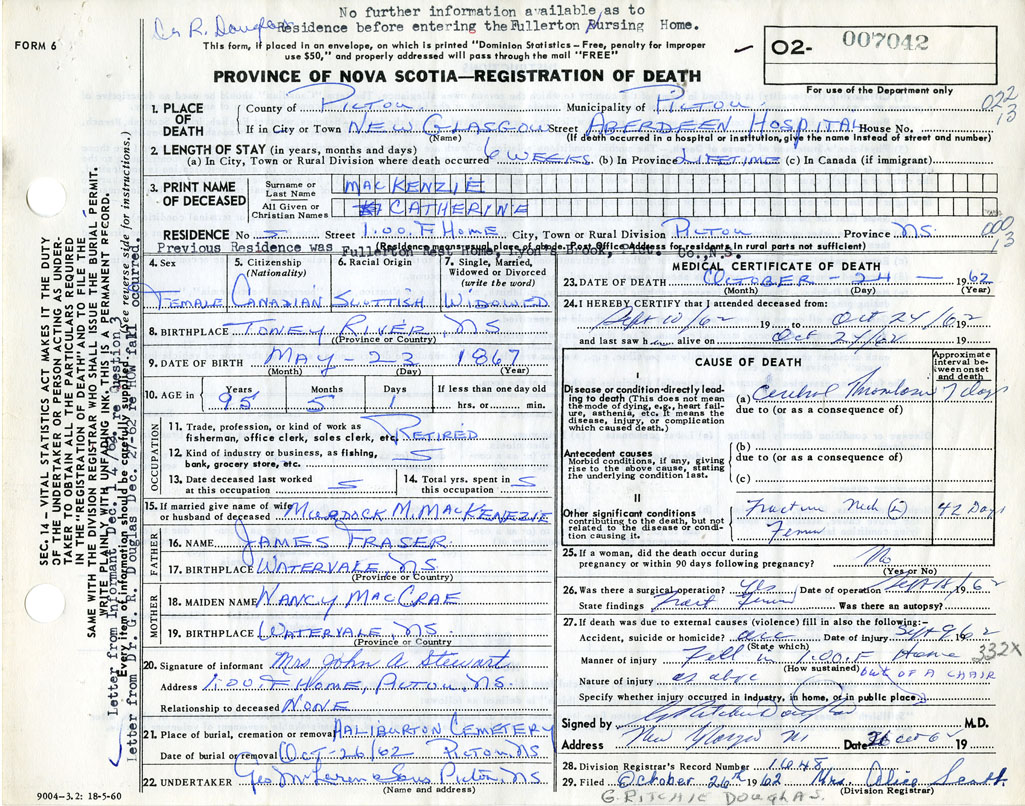 No further information available as to
Dr R. Douglas Residence before entering the Fullerton Nursing Home.
FORM 6
This form, if placed in an envelope, on which is printed "Dominion Statistics – Free, penalty for improper
use $50," and properly addressed will pass through the mail "FREE"
02- 007042
For use of the Department only
PROVINCE OF NOVA SCOTIA—REGISTRATION OF DEATH
022
13
1. PLACE OF DEATH
County of PICTOU Municipality of PICTOU
If in City or Town NEW GLASGOW Street ABERDEEN HOSPITAL House No.
(Name) (If death occurred in a hospital or institution, give the name instead of street and number)
2. LENGTH OF STAY (in years, months and days)
(a) In City, Town or Rural Division where death occurred 6 WEEKS (b) In Province LIFETIME (c) In Canada (if immigrant)
3. PRINT NAME OF DECEASED
Surname or Last Name MACKENZIE
All Given or Christian Names CATHERINE
RESIDENCE No 5 Street I.O.O.F HOME City, Town or Rural Division PICTOU Province N.S.
(Residence means usual place of abode. Post Office Address for residents in rural parts not sufficient)
Previous Residence was Fullerton Rest Home, Lyon's Brook, Pict. Co., N.S.
000
13
4. Sex FEMALE
5. Citizenship (Nationality) CANADIAN
6. Racial Origin SCOTTISH
7. Single, Married, Widowed or Divorced (write the word) WIDOWED
8. BIRTHPLACE TONEY RIVER, N.S.
(Province or Country)
9. DATE OF BIRTH MAY - 23 1867
(Month) (Day) (Year)
10. AGE in Years 95 Months 5 Days 1 If less than one day old hrs. or min.
OCCUPATION
11. Trade, profession, or kind of work as fisherman, office clerk, sales clerk, etc. RETIRED
12. Kind of industry or business, as fishing, bank, grocery store, etc. 5
13. Date deceased last worked at this occupation 5
14. Total yrs. spent in this occupation 5
15. If married give name of wife or husband of deceased MURDOCK M. MACKENEZIE
FATHER
16. NAME JAMES FRASER
17. BIRTHPLACE WATERVALE, N.S.
(Province or Country)
MOTHER
18. MAIDEN NAME NANCY MACCRAE
19. BIRTHPLACE WATERVALE N.S.
(Province or Country)
20. Signature of informant Mrs. John A Stewart
Address I.O.O.F HOME, PICTOU, N.S.
Relationship to deceased NONE
21. Place of burial, cremation or removal HALIBURTON CEMETERY
Date of burial or removal OCT-26/62 PICTOU N.S
22. UNDERTAKER Geo McLaren & Sons Pictou N.S
(Name and address)
9004-3.2: 18-5-60
MEDICAL CERTIFICATE OF DEATH
23. DATE OF DEATH OCTOBER - 24 - 1962
(Month) (Day) (Year)
24. I HEREBY CERTIFY that I attended deceased from:
Sept 10/62 19 to Oct 24/62 19
and last saw her alive on Oct 24/62 19
CAUSE OF DEATH
Approximate interval between onset and death
I
Disease or condition directly leading to death (This does not mean the mode of dying, e.g., heart failure, asthenia, etc. It means the disease, injury, or complication which caused death.)
(a) Cerebral Thrombosis 7 days
due to (or as a consequence of)
Antecedent causes
Morbid conditions, if any, giving rise to the above cause, stating the underlying condition last.
(b)
due to (or as a consequence of)
(c)
II
Other significant conditions contributing to the death, but not related to the disease or condition causing it.
Fracture Neck (L) Femur 42 Days
25. If a woman, did the death occur during pregnancy or within 90 days following pregnancy? No
(Yes or No)
26. Was there a surgical operation? Yes Date of operation Sept 18/62 196
State findings Fract Femur Was there an autopsy?
27. If death was due to external causes (violence) fill in also the following:-
Accident, suicide or homicide? acc Date of injury Sept 9/62
(State which)
332X
Manner of injury Fell in I.O.O.F Home
(How sustained) OUT OF A CHAIR
Nature of injury as above
Specify whether injury occurred in industry, in home, or in public place
Signed by G Ritchie Douglas M.D.
Address New Glasgow NS Date 26 Oct 62 19
28. Division Registrar's Record Number 1648
29. Filed October 26th 1962 Mrs. Alice Scott
(Division Registrar)
G. RITCHIE DOUGLAS
SEC. 14 – VITAL STATISTICS ACT MAKES IT THE DUTY
OF THE UNDERTAKER OR PERSON ACTING AS UNDER-
TAKER TO OBTAIN ALL THE PARTICULARS REQUIRED
IN THE "REGISTRATION OF DEATH" AND TO FILE THE
SAME WITH THE DIVISION REGISTRAR WHO SHALL ISSUE THE BURIAL PERMIT.
WRITE PLAINLY WITH UNFADING INK. THIS IS A PERMANENT RECORD.
Letter from Informant Dec. 14/62 re Question 3
Every item of information should be carefully supplied (See reverse side for instructions.)
letter from Dr. G. R. Douglas Dec. 27-62 re how fall occurred.